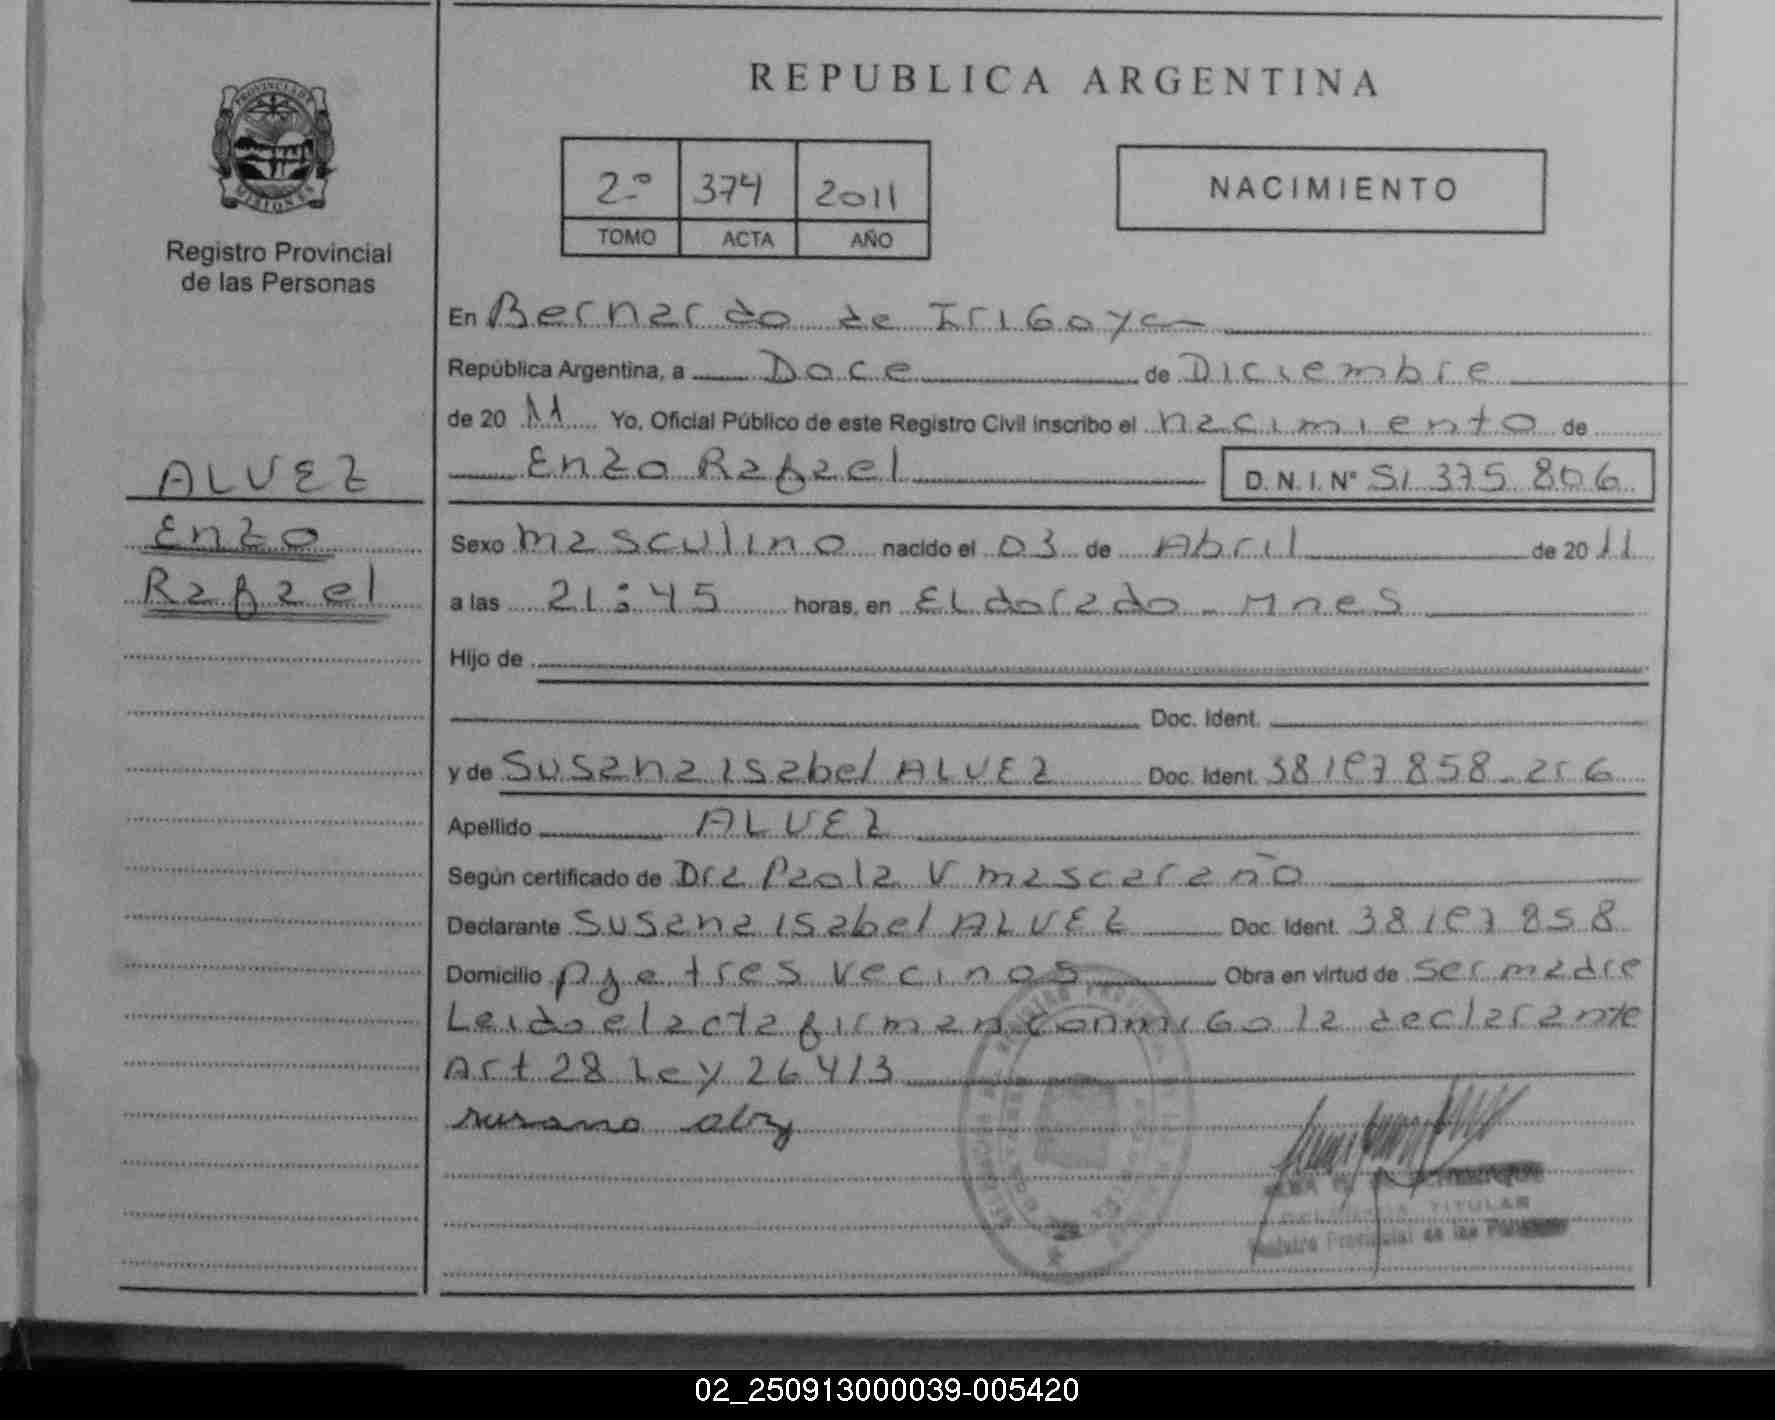 REPUBLICA ARGENTINA
PROVINCIA DE
MISIONES
Registro Provincial
de las Personas
2º 374 2011
TOMO ACTA AÑO
NACIMIENTO
En Bernardo de Irigoyen
República Argentina, a Doce de Diciembre
de 20 11 Yo, Oficial Público de este Registro Civil inscribo el nacimiento de
Enzo Rafael D. N. I. Nº 51 375 806
ALVEZ
Enzo
Rafael
Sexo masculino nacido el 03 de Abril de 20 11
a las 21:45 horas, en ELdorado - Mnes
Hijo de
Doc. Ident.
y de Susana Isabel ALVEZ Doc. Ident.
Apellido ALVEZ
Según certificado de Dra Paola V mascaraño
Declarante Susana Isabel ALVEZ Doc. Ident.
Domicilio pje tres vecinos Obra en virtud de ser madre
Leido el acta firman conmigo la declarante
Art 28 Ley 26413
TITULAR
Registro Provincial de las
02_250913000039-005420